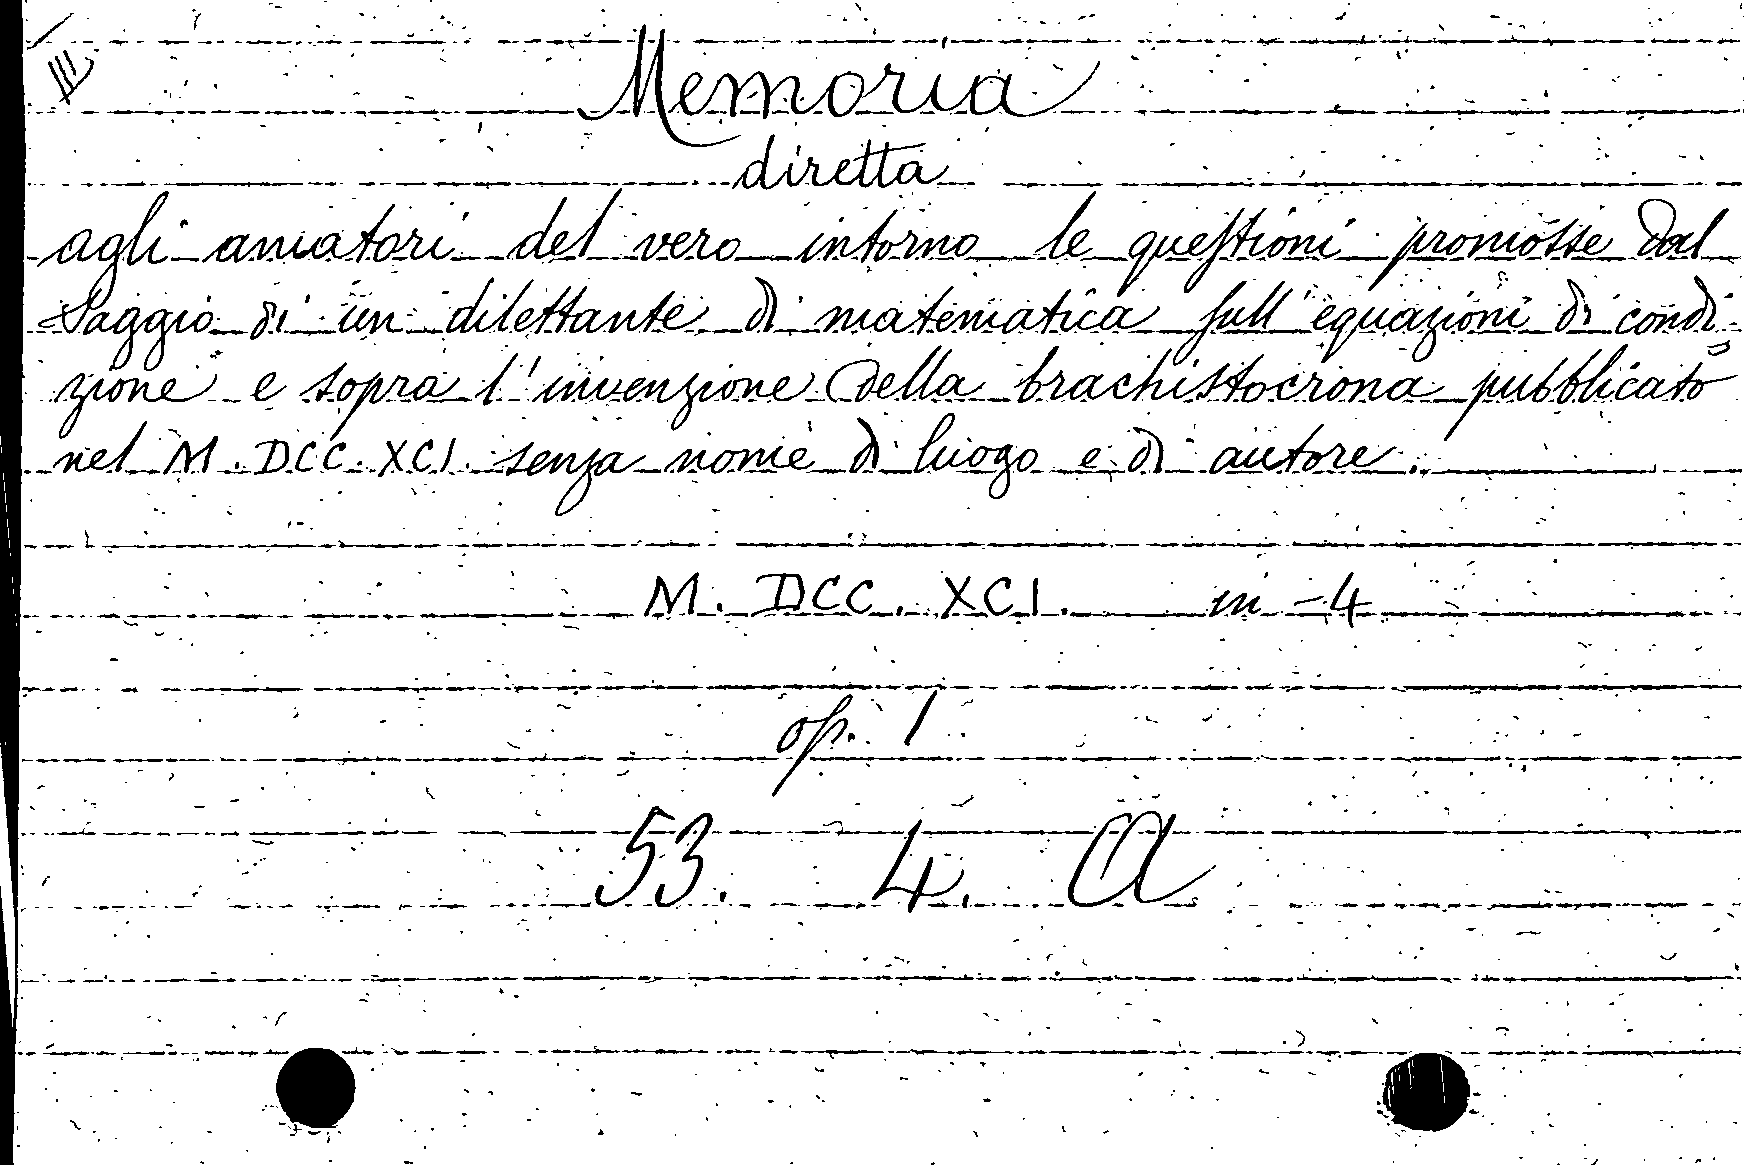 Memoria
diretta
agli amatori del vero intorno le queſtioni promosse dal
Saggio di un dilettante di matematica ſull'equazioni di condi=
zione e sopra l'invenzione della brachistocrona pubblicato
nel M.DCC.XCI. senza nome di luogo e di autore.
M.DCC.XCI. in-4
op. 1
53. 4. A